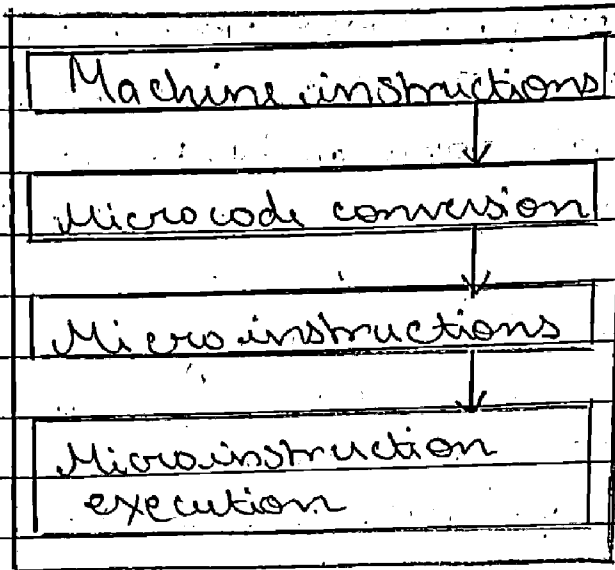 Machine instructions
Microcode conversion
Microinstructions
Microinstruction
execution